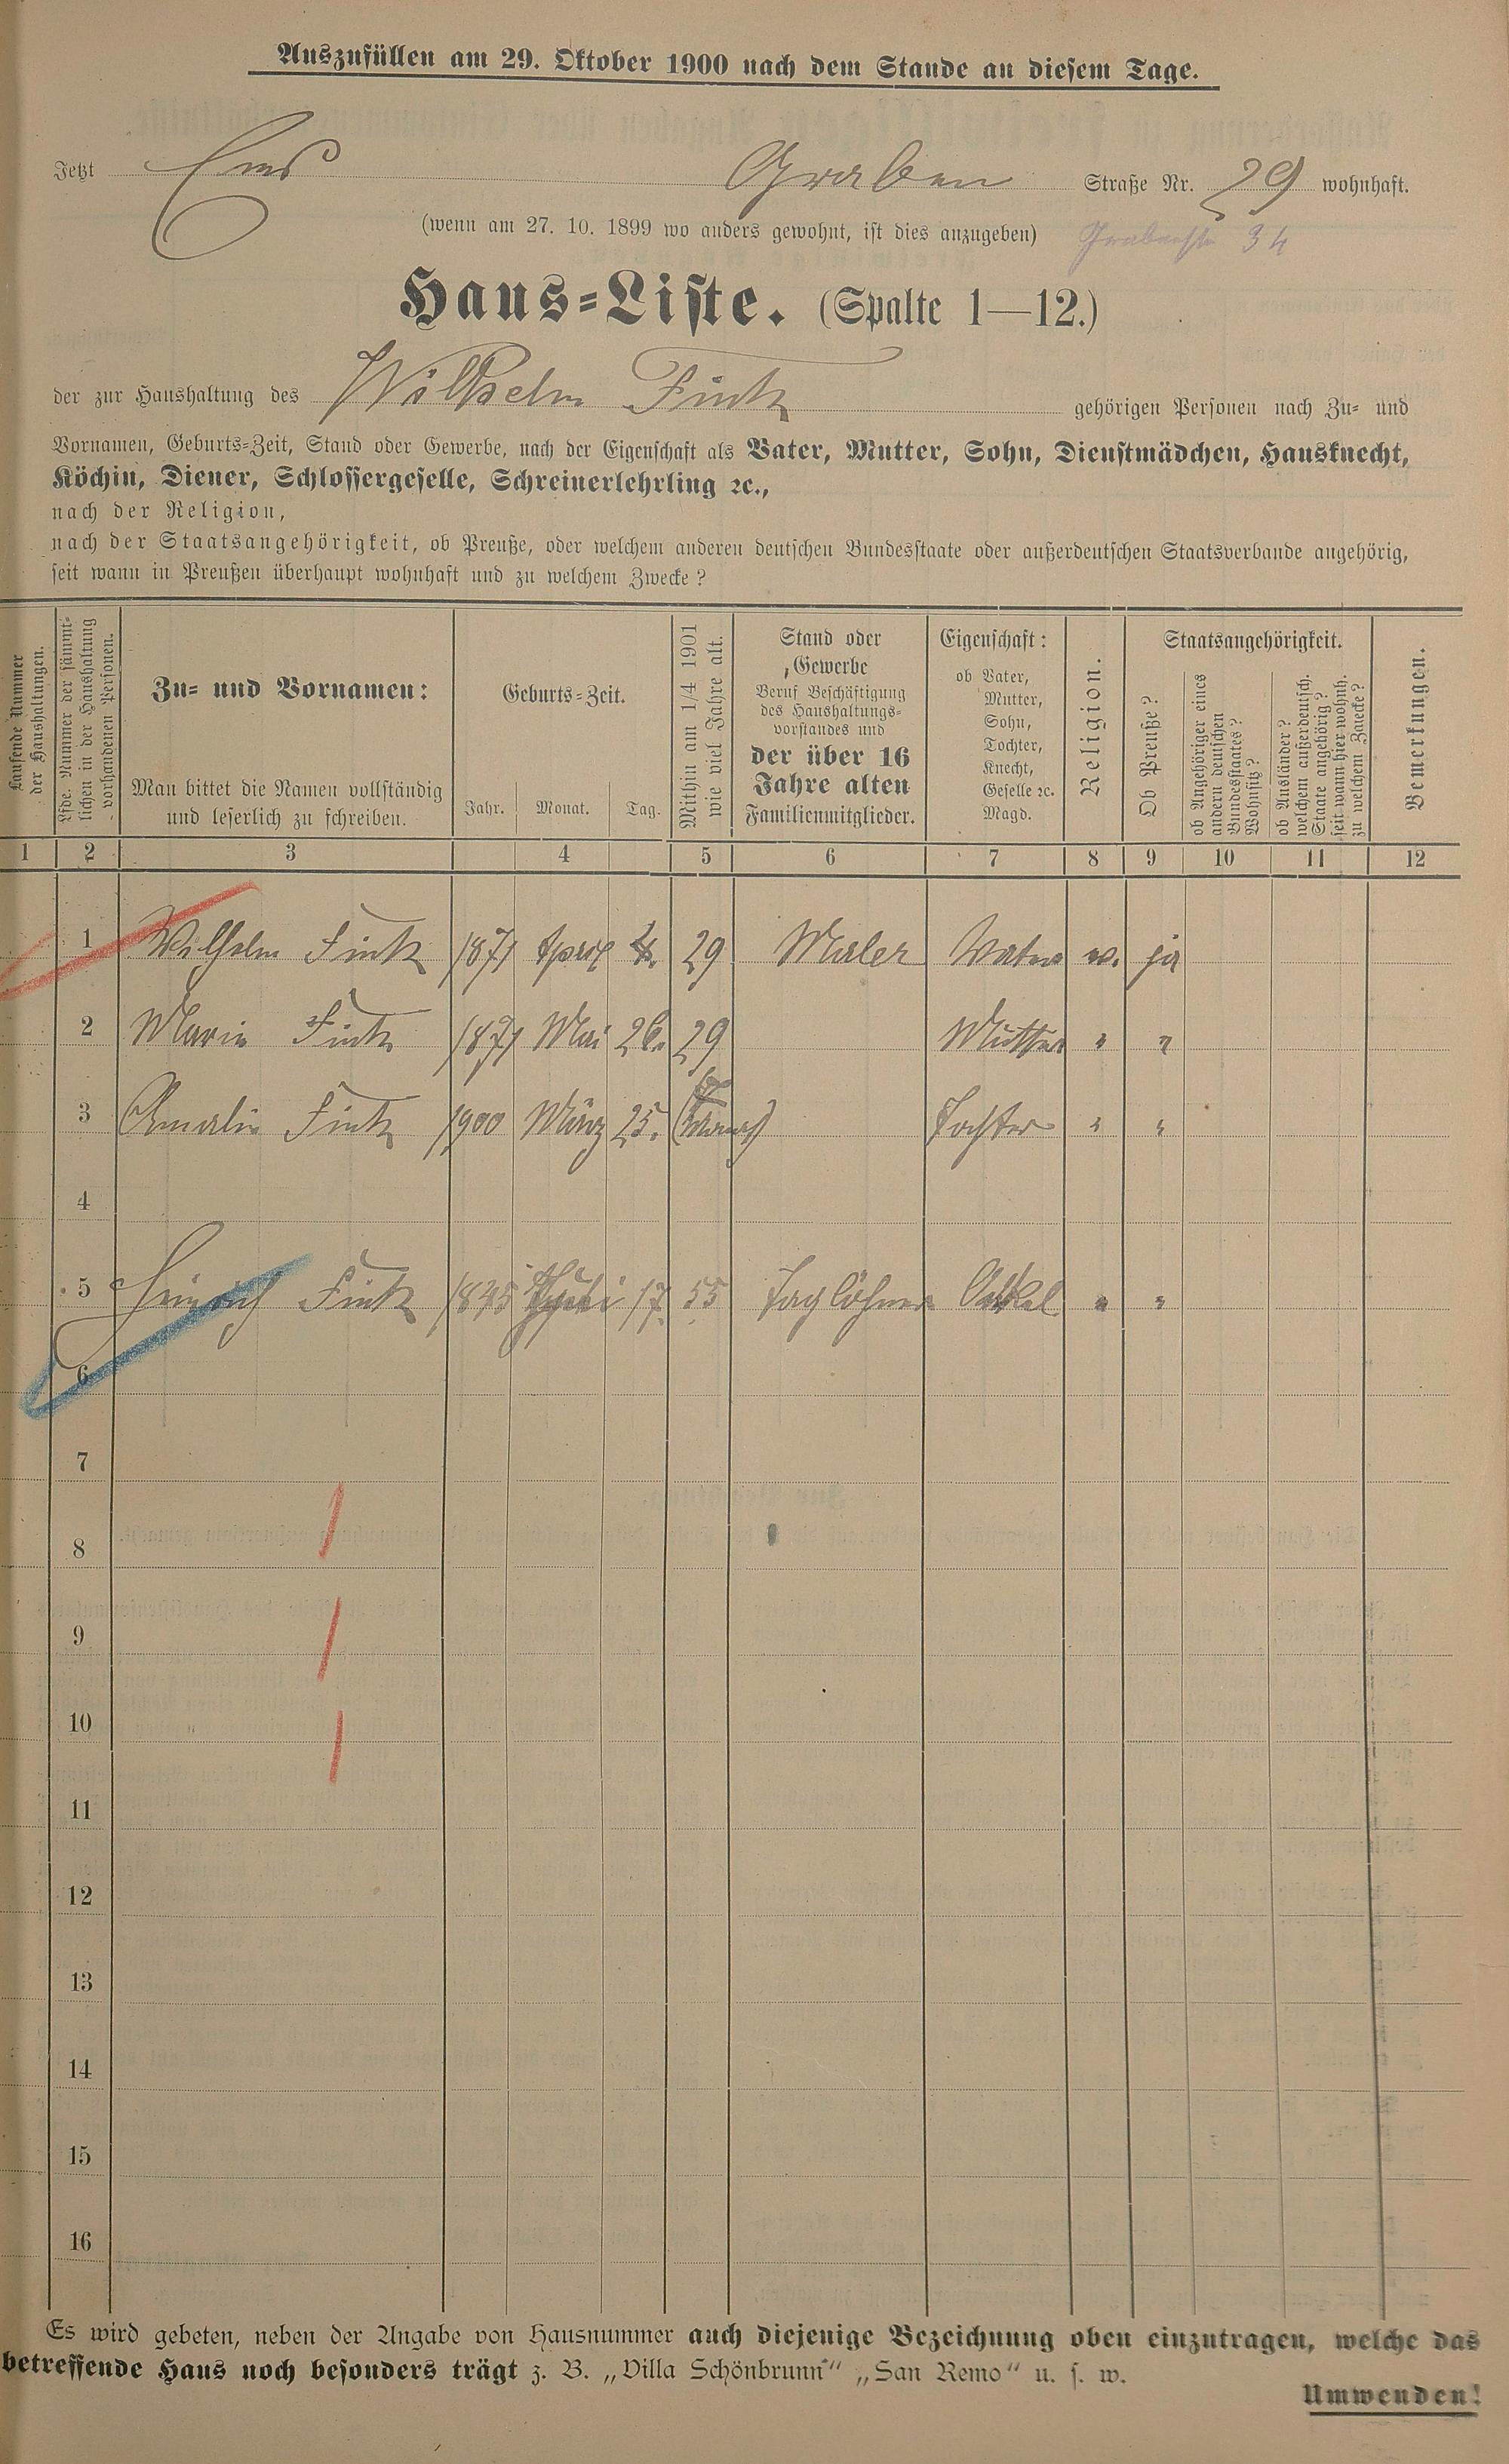 Auszufüllen am 29. Oktober 1900 nach dem Stande an diesem Tage.
Jetzt Ems Graben Straße Nr. 29 wohnhaft.
(wenn am 27. 10. 1899 wo anders gewohnt, ist dies anzugeben) Grabenstr 34
Haus-Liste. (Spalte 1—12.)
der zur Haushaltung des Wilhelm Fink gehörigen Personen nach Zu- und
Vornamen, Geburts-Zeit, Stand oder Gewerbe, nach der Eigenschaft als Vater, Mutter, Sohn, Dienstmädchen, Hausknecht,
Köchin, Diener, Schlossergeselle, Schreinerlehrling ꝛc.,
nach der Religion,
nach der Staatsangehörigkeit, ob Preuße, oder welchem anderen deutschen Bundesstaate oder außerdeutschen Staatsverbande angehörig,
seit wann in Preußen überhaupt wohnhaft und zu welchem Zwecke?
Laufende Nummer
der Haushaltungen.
Lfde. Nummer der sämmt-
lichen in der Haushaltung
vorhandenen Personen.
Zu- und Vornamen:
Man bittet die Namen vollständig
und leserlich zu schreiben.
Geburts-Zeit.
Jahr. Monat. Tag.
Mithin am 1/4 1901
wie viel Jahre alt.
Stand oder
Gewerbe
Beruf Beschäftigung
des Haushaltungs-
vorstandes und
der über 16
Jahre alten
Familienmitglieder.
Eigenschaft:
ob Vater,
Mutter,
Sohn,
Tochter,
Knecht,
Geselle ꝛc.
Magd.
Religion.
Staatsangehörigkeit.
Ob Preuße?
ob Angehöriger eines
andern deutschen
Bundesstaates?
Wohnsitz?
ob Ausländer?
welchem außerdeutsch.
Staate angehörig?
seit wann hier wohnh.
zu welchem Zwecke?
Bemerkungen.
1 2 3 4 5 6 7 8 9 10 11 12
1 Wilhelm Fink 1871 April 4. 29 Maler Vater ev. ja
2 Marie Fink 1871 Mai 26. 29 Mutter " "
3 Amalie Fink 1900 März 25. Tochter " "
4
5 Heinrich Fink 1845 17. 55 Taglöhner Onkel " "
6
7
8
9
10
11
12
13
14
15
16
Es wird gebeten, neben der Angabe von Hausnummer auch diejenige Bezeichnung oben einzutragen, welche das
betreffende Haus noch besonders trägt z. B. „Villa Schönbrunn“ „San Remo“ u. s. w.
Umwenden!